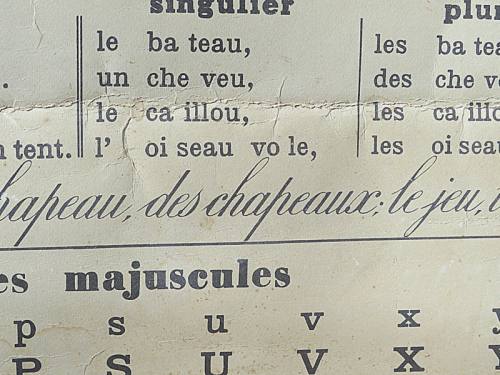 singulier
le ba teau, les ba
un che veu, des che
le ca illou, les ca
tent. l' oi seau vo le, les oi
des chapeaux; le jeu,
majuscules
p s u v x y
P S U V X Y